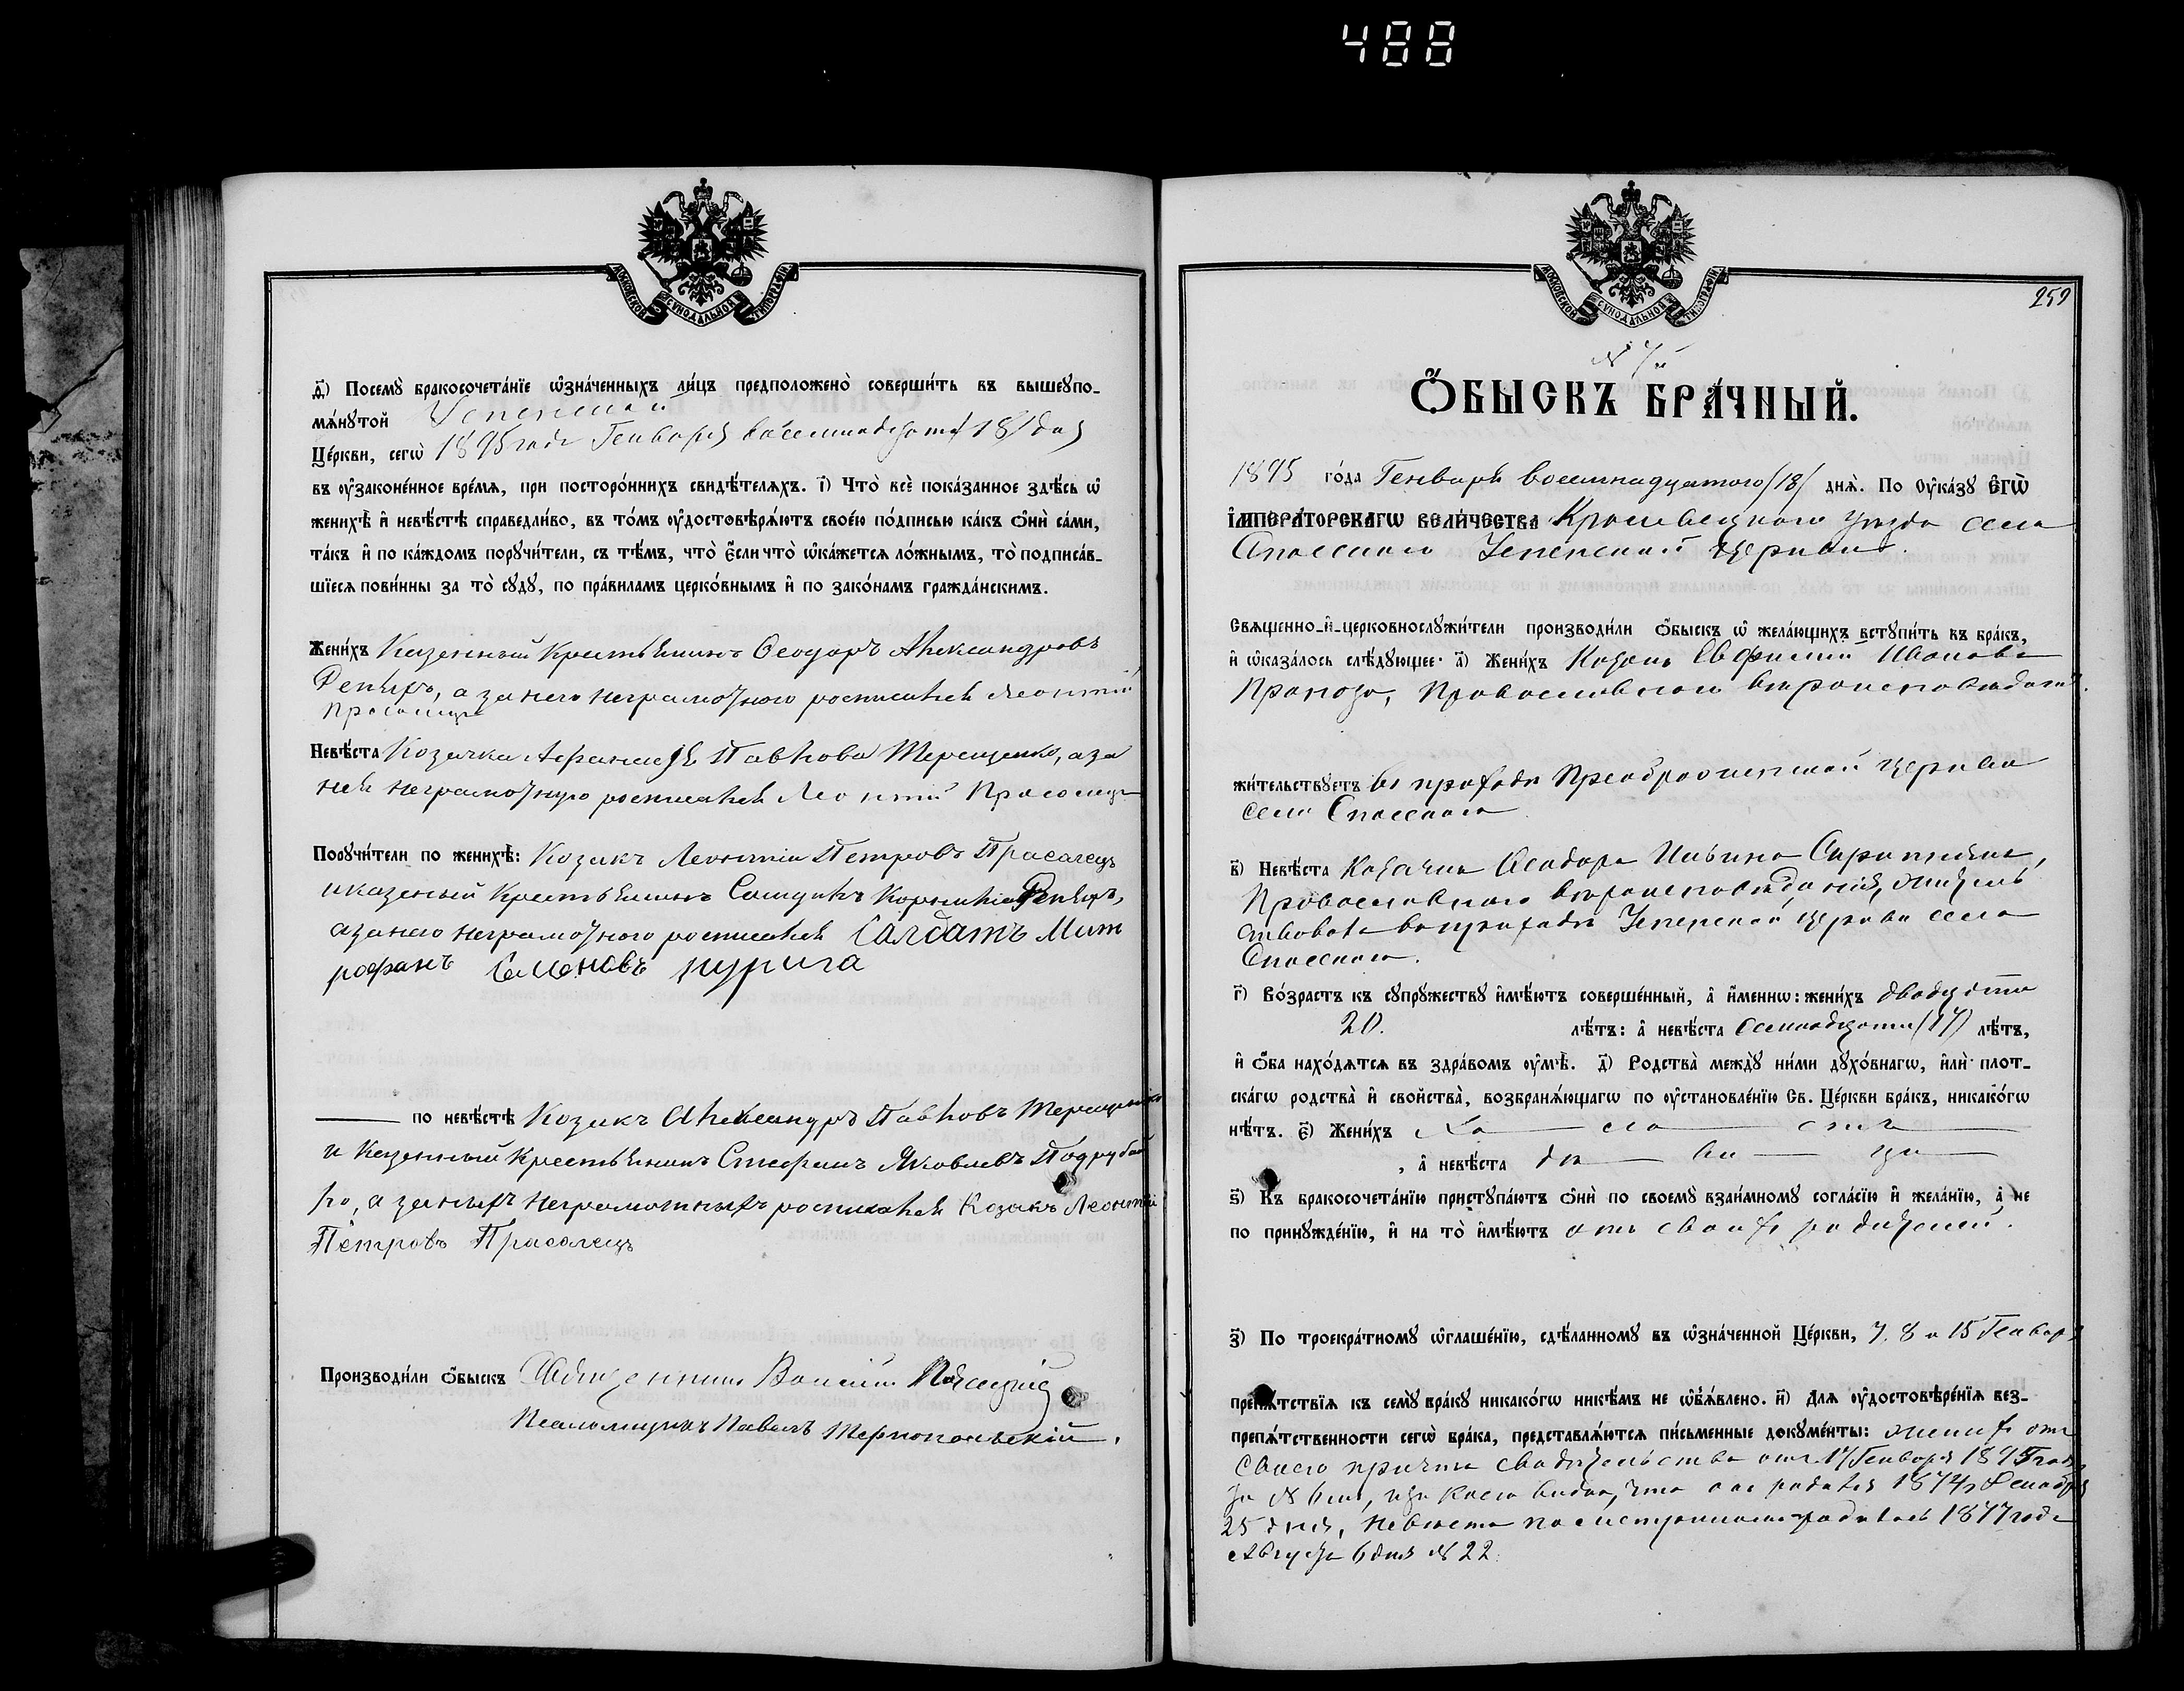 488
МОСКОВСКОЙ СѴНОДАЛЬНОЙ ТИПОГРАФІИ
ѳ҃) Посемꙋ̀ бракосочета́нїе ѡ҆зна́ченныхъ ли́цъ предположено̀ соверши́ть въ вышеꙋпо-
мѧ́нꙋтой Успенской
Це́ркви, сегѡ̀ 1895 года Генваря восемнадцатаго /18/ дня
въ ᲂу҆законе́нное вре́мѧ, при посторо́ннихъ свидѣ́телѧхъ. і҃) Что̀ всѐ пока́занное здѣ́сь ѡ҆
женихѣ̀ и҆ невѣ́стѣ справедли́во, въ то́мъ ᲂу҆достовѣрѧ́ютъ свое́ю по́дписью ка́къ ѻ҆нѝ са́ми,
та́къ и҆ по ка́ждомъ порꙋчи́тели, съ тѣ́мъ, что̀ є҆́сли что̀ ѡ҆ка́жетсѧ ло́жнымъ, то̀ подписа́в-
шїесѧ пови́нны за то̀ сꙋдꙋ̀, по пра́виламъ церко́внымъ и҆ по зако́намъ гражда́нскимъ.
Жени́хъ Казенный Крестьянинъ Ѳеодоръ Александровъ
Репяхъ, а за него неграмотнаго росписался Леонтій
Просолецъ
Невѣ́ста Козачка Павлова Терещенко, а за
нея неграмотную росписался Леонтій Просолецъ
Порꙋчи́тели по женихѣ̀: Козакъ Леонтій Петровъ Прасалецъ
и казенный Крестьянинъ Репяхъ,
а за него неграмотнаго росписался Салдатъ Мит
рофанъ Семеновъ
по невѣ́стѣ Козакъ Александръ Павловъ Терещенко
и Казенный Крестьянинъ Стефанъ Яковлевъ
а за нихъ неграмотныхъ росписался Козакъ Леонтій
Петровъ Прасалецъ
Производи́ли ѻ҆́быскъ Священникъ
Псаломщикъ Павелъ Тернопольскій.
МОСКОВСКОЙ СѴНОДАЛЬНОЙ ТИПОГРАФІИ
259
N 7й
Ѻ҆́БЫСКЪ БРА́ЧНЫЙ.
1895 го́да Генваря восемнадцатаго /18/ днѧ̀. По Оу҆ка́зꙋ Є҆ГѠ̀
І҆МПЕРА́ТОРСКАГѠ ВЕЛИ́ЧЕСТВА Кролевецкаго уѣзда села
Спасскаго Успенской церкви.
Свѧщенно-и҆-церковнослꙋжи́тели производи́ли ѻ҆́быскъ ѡ҆ жела́ющихъ встꙋпи́ть въ бра́къ,
и҆ ѡ҆каза́лось слѣ́дꙋющее: а҃) Жени́хъ Козакъ Евфимій Ивановъ
Православнаго вѣроисповѣданія.
жи́тельствꙋетъ въ приходѣ Преображенской церкви
села Спасскаго
в҃) Невѣ́ста Козачка Ѳеодора Ильина
Православнаго вѣроисповѣданія, житель
ствовала въ приходѣ Успенской церкви села
Спасскаго.
г҃) Во́зрастъ къ сꙋпрꙋ́жествꙋ и҆мѣ́ютъ соверше́нный, а҆ и҆́меннѡ: жени́хъ двадцати
20. лѣ́тъ: а҆ невѣ́ста семнадцати (17) лѣ́тъ,
и҆ ѻ҆́ба нахо́дѧтсѧ въ здра́вомъ ᲂу҆мѣ̀. д҃) Родства̀ междꙋ̀ ни́ми дꙋхо́внагѡ, и҆лѝ плот-
ска́гѡ родства̀ и҆ свойства̀, возбранѧ́ющагѡ по ᲂу҆становле́нїю Св. Це́ркви бра́къ, никако́гѡ
нѣ́тъ. є҃) Жени́хъ Хо ло стъ
, а҆ невѣ́ста дѣ ви ца
ѕ҃) Къ бракосочета́нїю пристꙋпа́ютъ ѻ҆нѝ по своемꙋ̀ взаи́мномꙋ согла́сїю и҆ жела́нїю, а҆ не
по принꙋжде́нїю, и҆ на то̀ и҆мѣ́ютъ отъ своихъ родителей.
з҃) По троекра́тномꙋ ѡ҆глаше́нїю, сдѣ́ланномꙋ въ ѡ҆зна́ченной Це́ркви, 7, 8 и 15 Генваря
препѧ́тствїѧ къ семꙋ̀ бра́кꙋ никако́гѡ никѣ́мъ не ѡ҆б̾ѧ́влено. и҃) Длѧ ᲂу҆достовѣре́нїѧ без-
препѧ́тственности сегѡ̀ бра́ка, представлѧ́ютсѧ пи́сьменные докꙋме́нты: женихъ отъ
своего причта свидѣтельство отъ 17 Генваря 1895 года
за N 6мъ, изъ коего видно, что онъ родился 1874 г Сентября
25 дня, невѣста по метрикамъ родилась 1877 года
Августа 6 дня N 22.